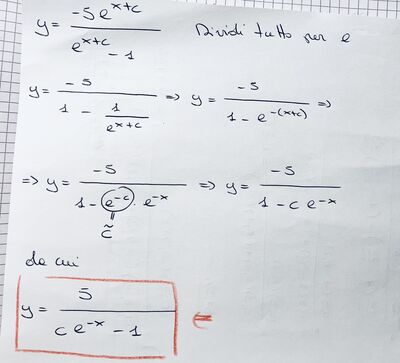 y = -5e^{x+c} / (e^{x+c} - 1) Dividi tutto per e
y = -5 / (1 - 1/e^{x+c}) => y = -5 / (1 - e^{-(x+c)}) =>
=> y = -5 / (1 - e^{-c} · e^{-x}) => y = -5 / (1 - c e^{-x})
= c̃
da cui
y = 5 / (c e^{-x} - 1) ⇐